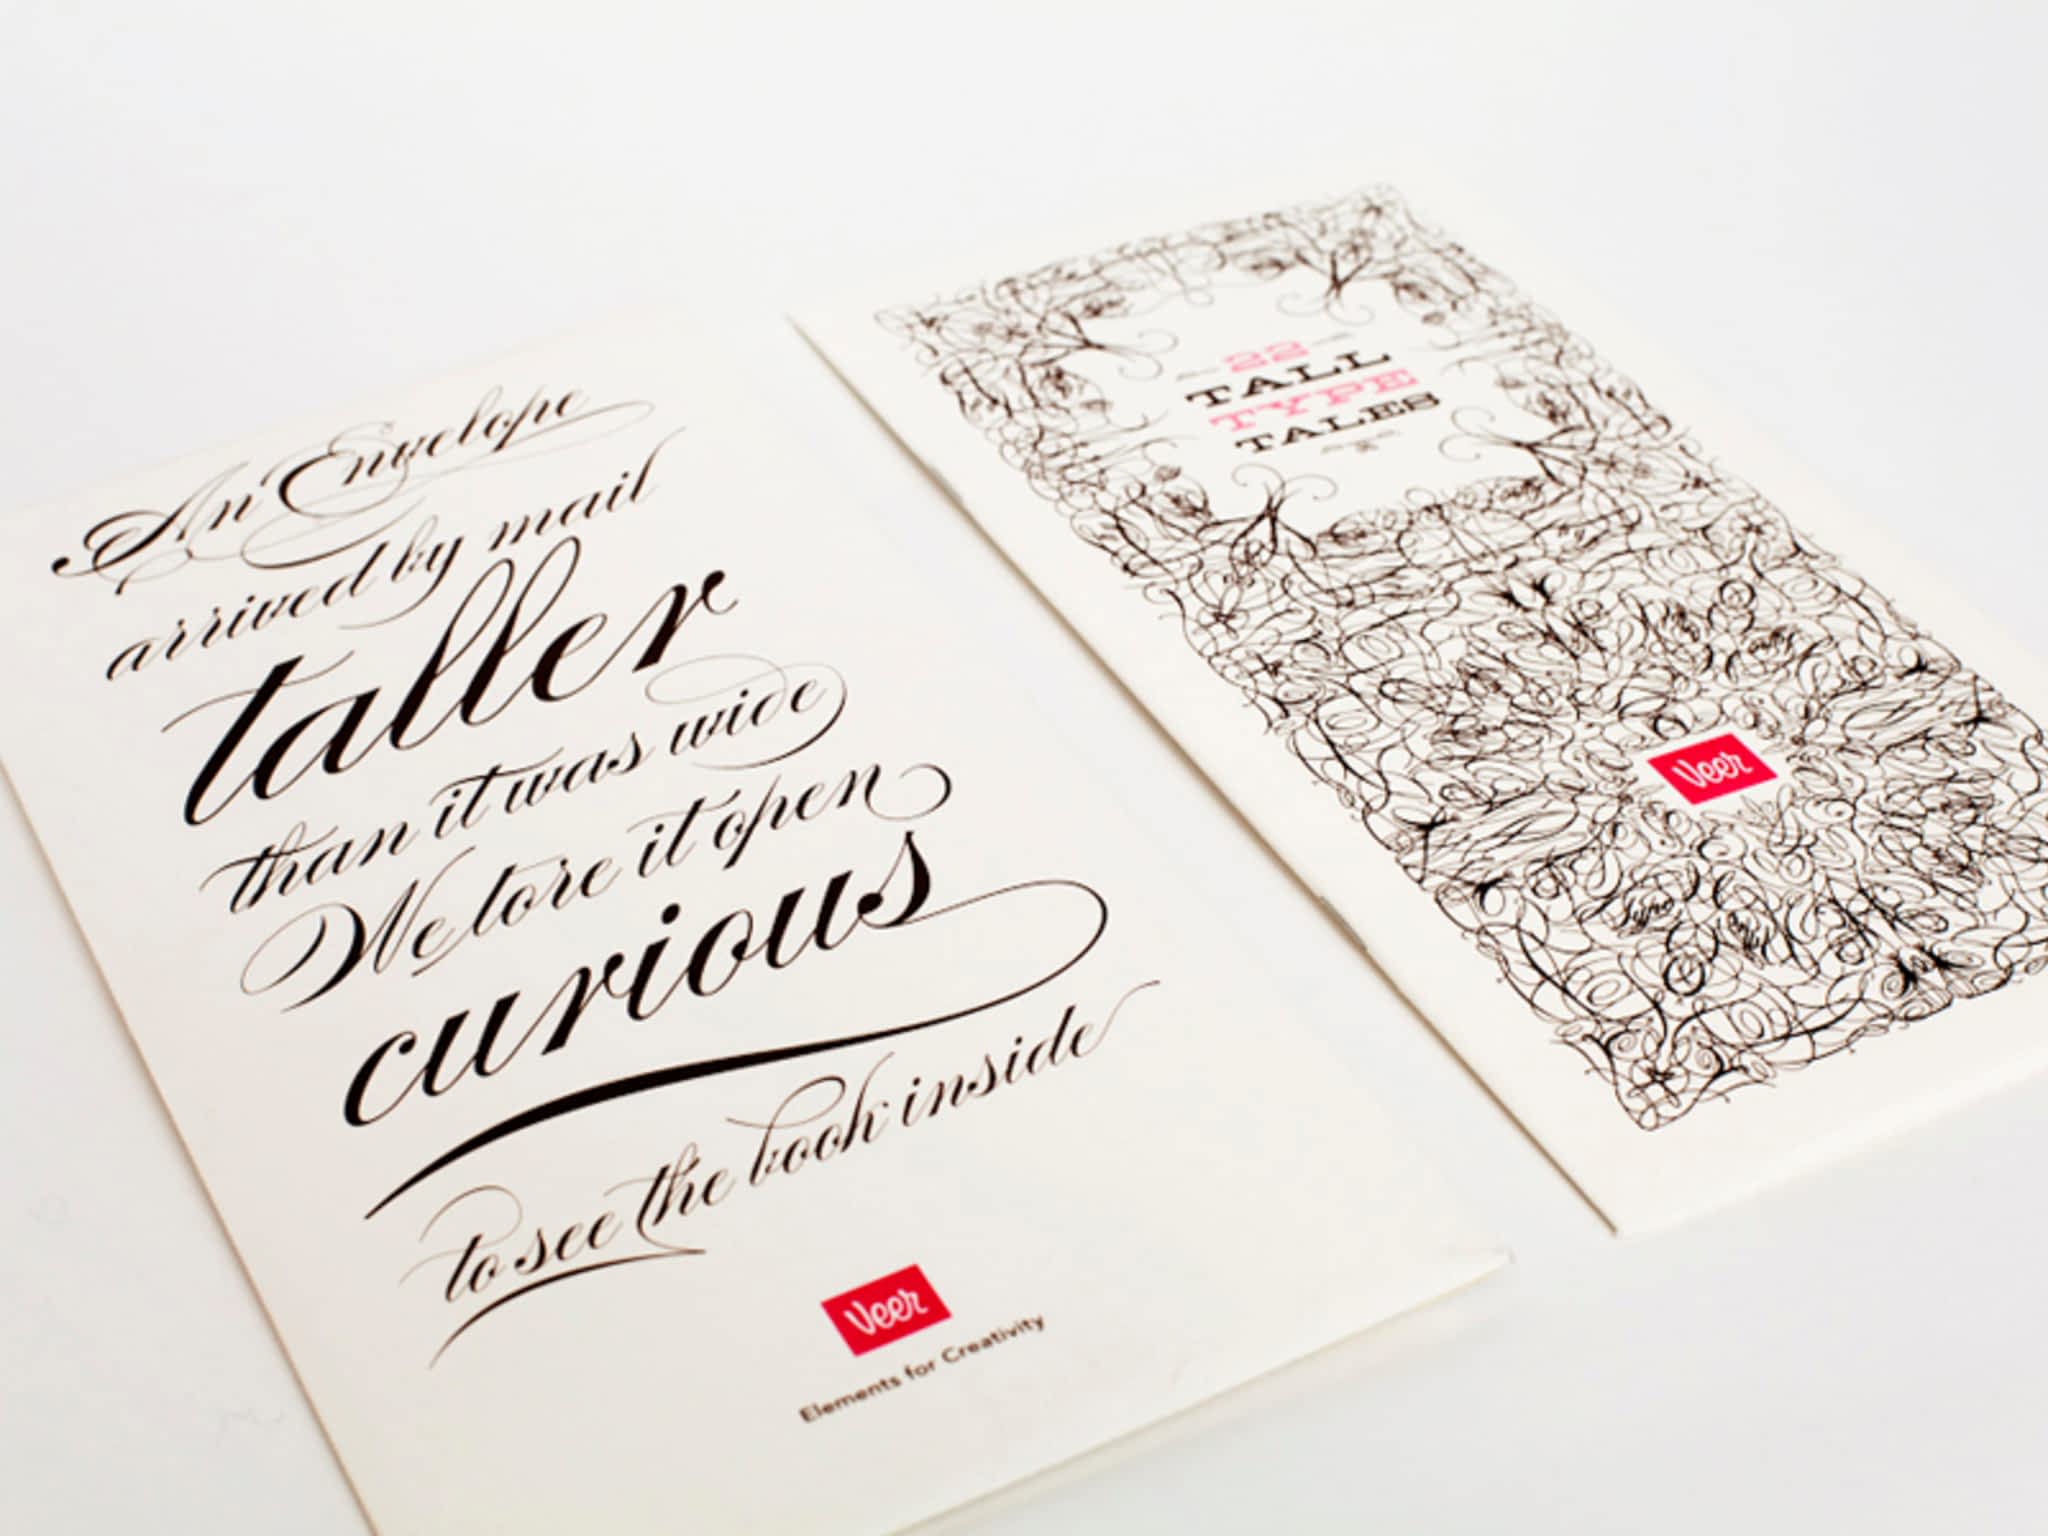 An Envelope
arrived by mail
taller
than it was wide
We tore it open
curious
to see the book inside
Veer
Elements for Creativity
22
TALL
TYPE
TALES
Veer